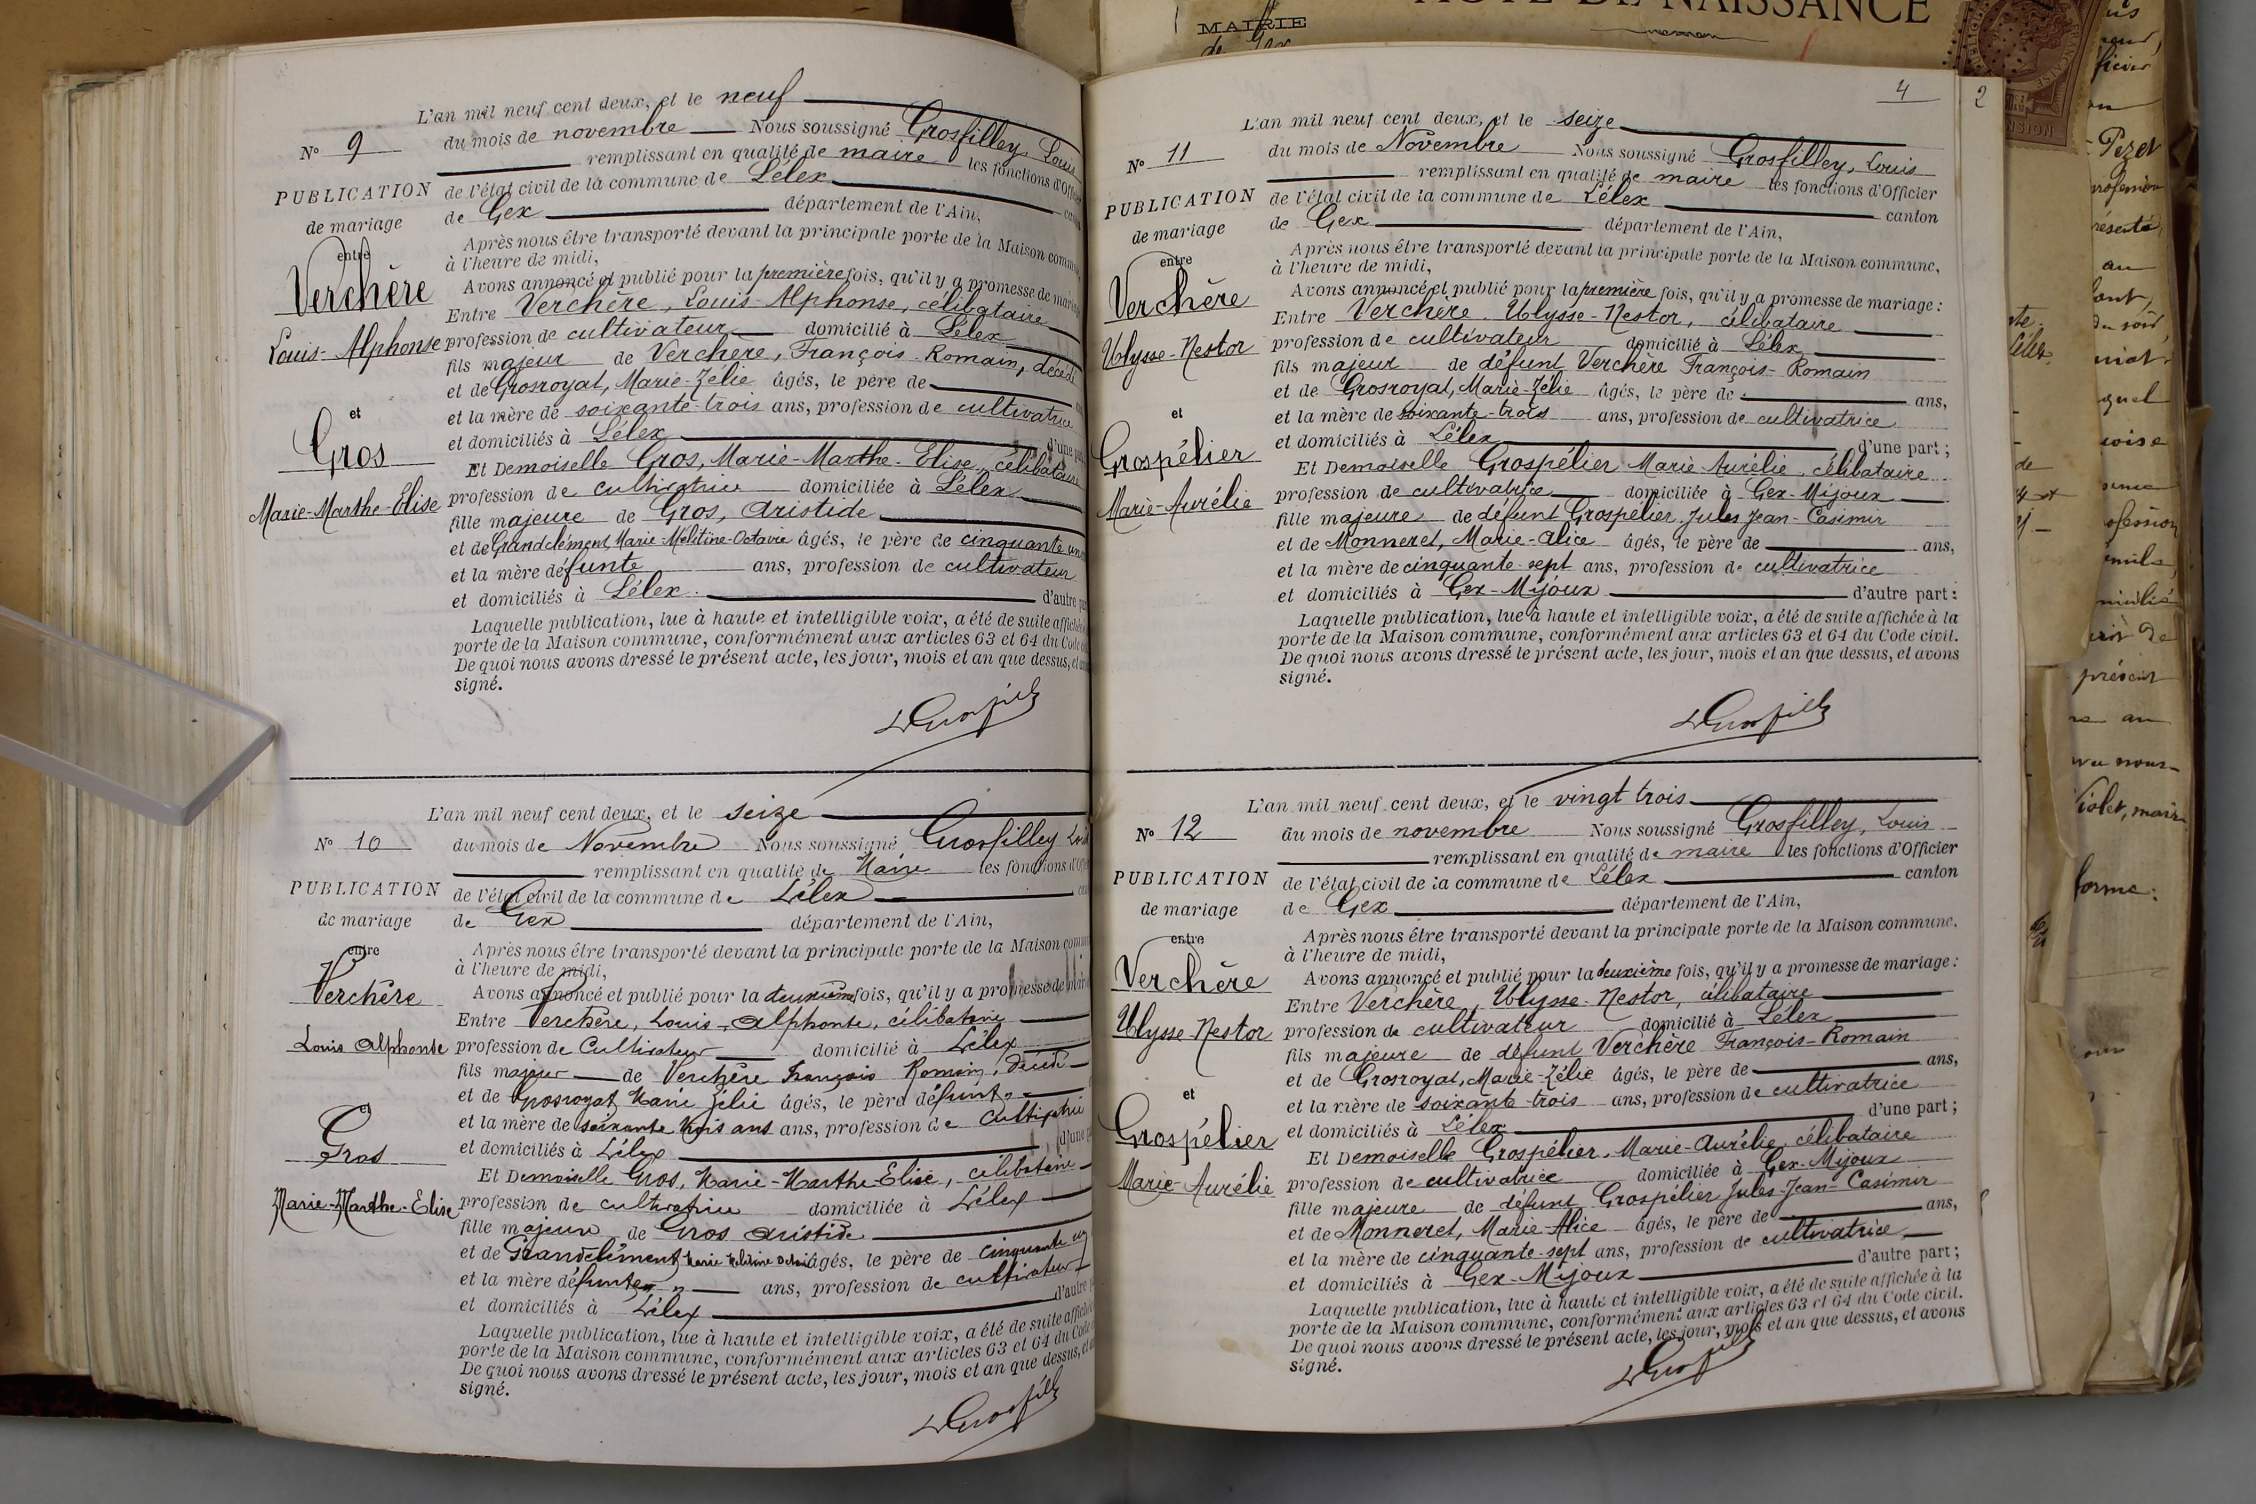 L'an mil neuf cent deux, et le neuf
N° 9
du mois de novembre Nous soussigné Grosfilley, Louis
remplissant en qualité de maire les fonctions d'Officier
PUBLICATION
de l'état civil de la commune de Lélex
de mariage
de Gex département de l'Ain,
Après nous être transporté devant la principale porte de la Maison commune,
entre
à l'heure de midi,
Avons annoncé et publié pour la première fois, qu'il y a promesse de mariage
Verchère
Entre Verchère, Louis-Alphonse, célibataire
Louis-Alphonse
profession de cultivateur domicilié à Lélex
fils majeur de Verchère, François-Romain, décédé
et de Grosroyat, Marie-Zélie âgés, le père de
et
et la mère de soixante-trois ans, profession de cultivatrice
Gros
et domiciliés à Lélex d'une part
Et Demoiselle Gros, Marie-Marthe-Elise, célibataire
Marie-Marthe-Elise
profession de cultivatrice domiciliée à Lélex
fille majeure de Gros, Aristide
et de Grandclément, Marie-Mélitine-Octavie âgés, le père de cinquante un
et la mère défunte ans, profession de cultivateur
et domiciliés à Lélex d'autre part
Laquelle publication, lue à haute et intelligible voix, a été de suite affichée
porte de la Maison commune, conformément aux articles 63 et 64 du Code
De quoi nous avons dressé le présent acte, les jour, mois et an que dessus, et
signé.
L'an mil neuf cent deux, et le seize
N° 10
du mois de Novembre Nous soussigné Grosfilley Louis
remplissant en qualité de Maire les fonctions d'Officier
PUBLICATION
de l'état civil de la commune de Lélex
de mariage
de Gex département de l'Ain,
entre
Après nous être transporté devant la principale porte de la Maison commune
à l'heure de midi,
Verchère
Avons annoncé et publié pour la deuxième fois, qu'il y a promesse de
Entre Verchère, Louis-Alphonse, célibataire
Louis Alphonse
profession de Cultivateur domicilié à Lélex
fils majeur de Verchère François Romain, décédé
et de Grosroyat Marie Zélie âgés, le père défunt
et
et la mère de soixante trois ans ans, profession de Cultivatrice
Gros
et domiciliés à Lélex
Et Demoiselle Gros, Marie-Marthe-Elise, célibataire
Marie-Marthe-Elise
profession de cultivatrice domiciliée à Lélex
fille majeure de Gros Aristide
et de Grandclément Marie Mélitine Octavie âgés, le père de cinquante un
et la mère défunte ans, profession de cultivateur
et domiciliés à Lélex d'autre
Laquelle publication, lue à haute et intelligible voix, a été de suite affichée
porte de la Maison commune, conformément aux articles 63 et 64 du Code
De quoi nous avons dressé le présent acte, les jour, mois et an que dessus,
signé.
ACTE DE NAISSANCE
MAIRIE
de Gex
4
2
L'an mil neuf cent deux, et le seize
N° 11
du mois de Novembre Nous soussigné Grosfilley, Louis
remplissant en qualité de maire les fonctions d'Officier
PUBLICATION
de l'état civil de la commune de Lélex canton
de mariage
de Gex département de l'Ain,
Après nous être transporté devant la principale porte de la Maison commune,
entre
à l'heure de midi,
Avons annoncé et publié pour la première fois, qu'il y a promesse de mariage :
Verchère
Entre Verchère Ulysse-Nestor, célibataire
Ulysse-Nestor
profession de cultivateur domicilié à Lélex
fils majeur de défunt Verchère François-Romain
et de Grosroyat, Marie-Zélie âgés, le père de ans,
et
et la mère de soixante-trois ans, profession de cultivatrice
et domiciliés à Lélex d'une part ;
Grospélier
Et Demoiselle Grospélier Marie-Aurélie, célibataire
Marie-Aurélie
profession de cultivatrice domiciliée à Gex-Mijoux
fille majeure de défunt Grospélier Jules Jean-Casimir
et de Monneret, Marie-Alice âgés, le père de ans,
et la mère de cinquante-sept ans, profession de cultivatrice
et domiciliés à Gex-Mijoux d'autre part :
Laquelle publication, lue à haute et intelligible voix, a été de suite affichée à la
porte de la Maison commune, conformément aux articles 63 et 64 du Code civil.
De quoi nous avons dressé le présent acte, les jour, mois et an que dessus, et avons
signé.
L'an mil neuf cent deux, et le vingt trois
N° 12
du mois de novembre Nous soussigné Grosfilley, Louis
remplissant en qualité de maire les fonctions d'Officier
PUBLICATION
de l'état civil de la commune de Lélex canton
de mariage
de Gex département de l'Ain,
Après nous être transporté devant la principale porte de la Maison commune.
entre
à l'heure de midi,
Verchère
Avons annoncé et publié pour la deuxième fois, qu'il y a promesse de mariage :
Entre Verchère, Ulysse-Nestor, célibataire
Ulysse-Nestor
profession de cultivateur domicilié à Lélex
fils majeure de défunt Verchère François-Romain
et de Grosroyat, Marie-Zélie âgés, le père de ans,
et
et la mère de soixante-trois ans, profession de cultivatrice
Grospélier
et domiciliés à Lélex d'une part ;
Et Demoiselle Grospélier, Marie-Aurélie, célibataire
Marie-Aurélie
profession de cultivatrice domiciliée à Gex-Mijoux
fille majeure de défunt Grospélier Jules-Jean-Casimir
et de Monneret, Marie-Alice âgés, le père de ans,
et la mère de cinquante-sept ans, profession de cultivatrice
et domiciliés à Gex-Mijoux d'autre part ;
Laquelle publication, lue à haute et intelligible voix, a été de suite affichée à la
porte de la Maison commune, conformément aux articles 63 et 64 du Code civil.
De quoi nous avons dressé le présent acte, les jour, mois et an que dessus, et avons
signé.
Pezet
au
quel
présent
Violet, maire
forme :